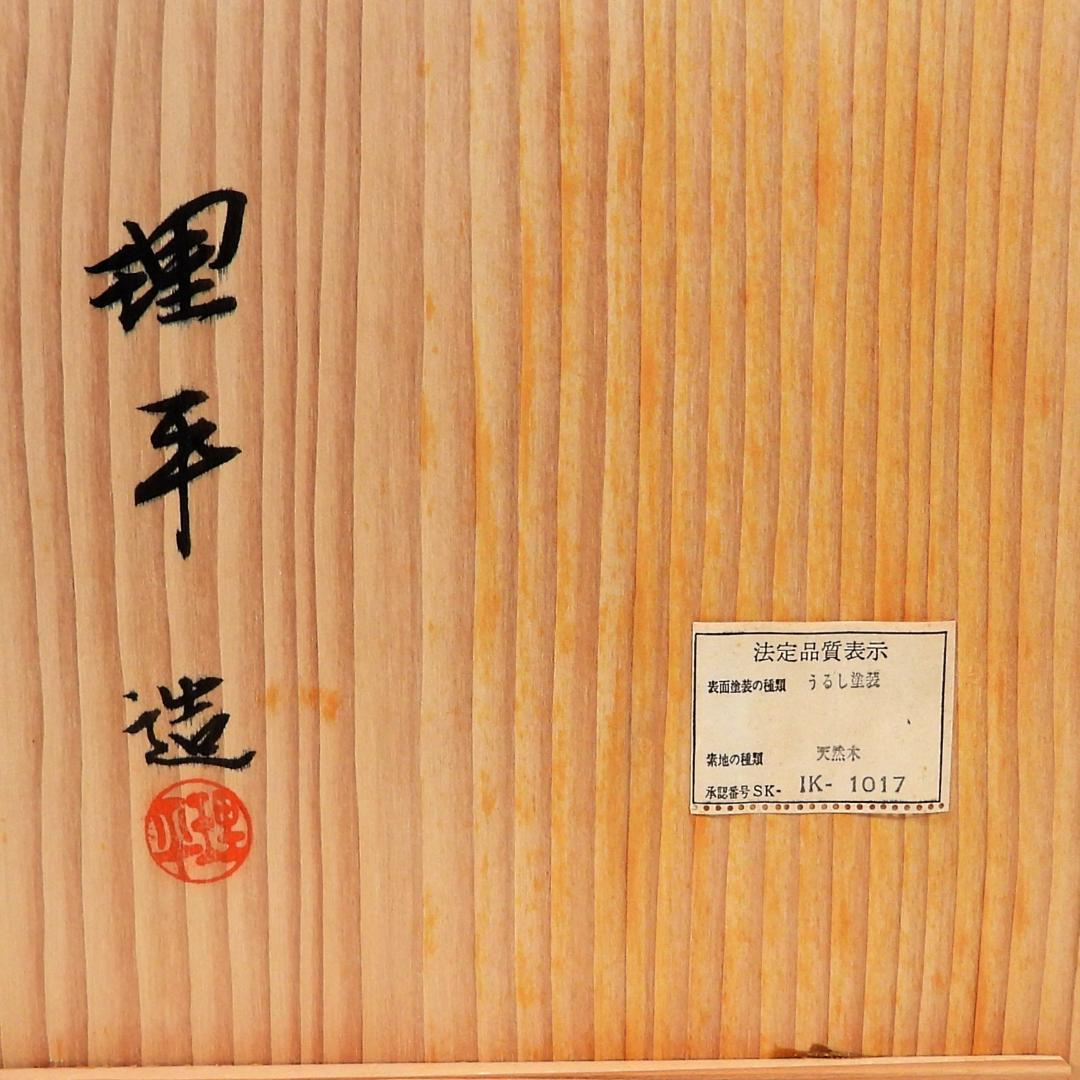 理平造
理平
法定品質表示
表面塗装の種類 うるし塗装
素地の種類 天然木
承認番号SK- IK- 1017